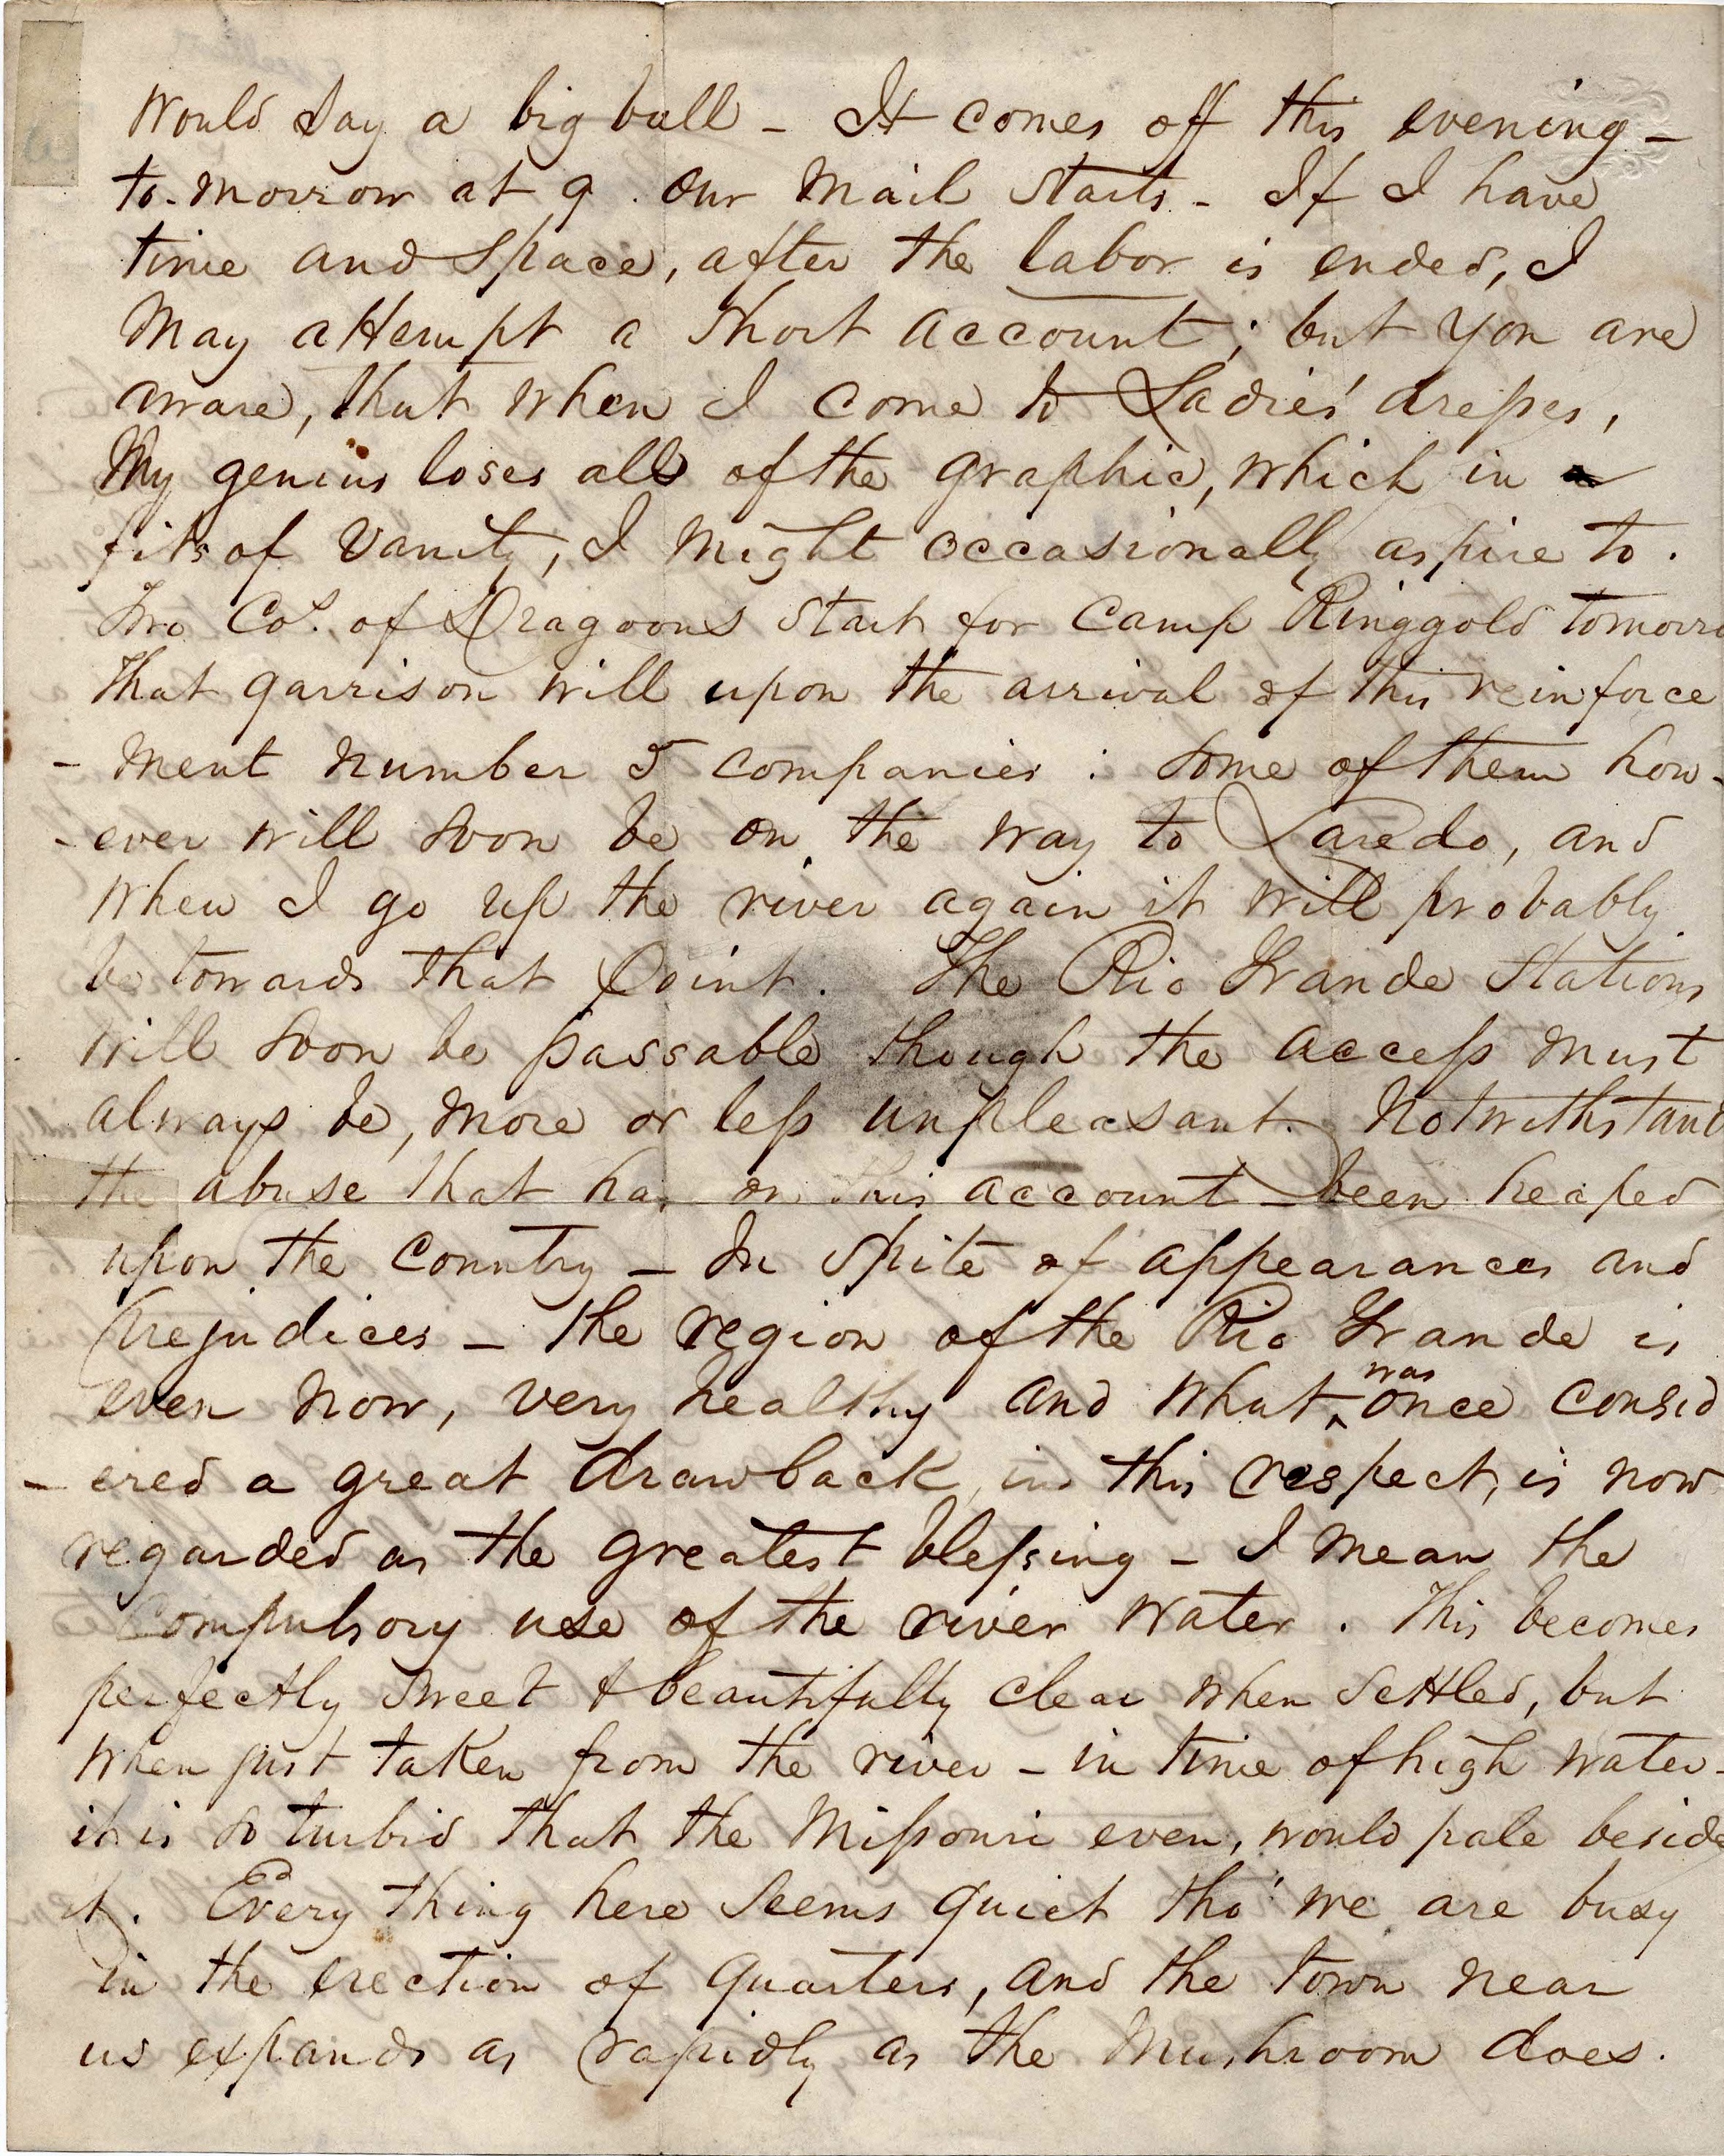 would say a big ball - It comes off this evening -
to-morrow at 9. our mail starts - If I have
time and space, after the labor is ended, I
may attempt a short account; but you are
aware, that when I come to Ladies' dresses,
My genius loses all of the graphic, which in
fits of vanity, I might occasionally aspire to.
Two Cos. of Dragoons start for Camp Ringgold tomorro
that garrison will upon the arrival of this reinforce
- ment number 5 companies : some of them how-
- ever will soon be on the way to Laredo, and
when I go up the river again it will probably
be towards that point. The Rio Grande Stations
will soon be passable though the access must
always be, more or less unpleasant. Notwithstand
the abuse that has on this account - been heaped
upon the country - In spite of appearances and
prejudices - the region of the Rio Grande is
even now, very healthy and what ^was once consid
- ered a great drawback, in this respect, is now
regarded as the greatest blessing - I mean the
compulsory use of the river water. This becomes
perfectly sweet & beautifully clear when settled, but
when just taken from the river - in time of high water -
it is so turbid that the Missouri even, would pale beside
it. Every thing here seems quiet tho' we are busy
in the erection of quarters, and the town near
us expands as rapidly as the mushroom does.